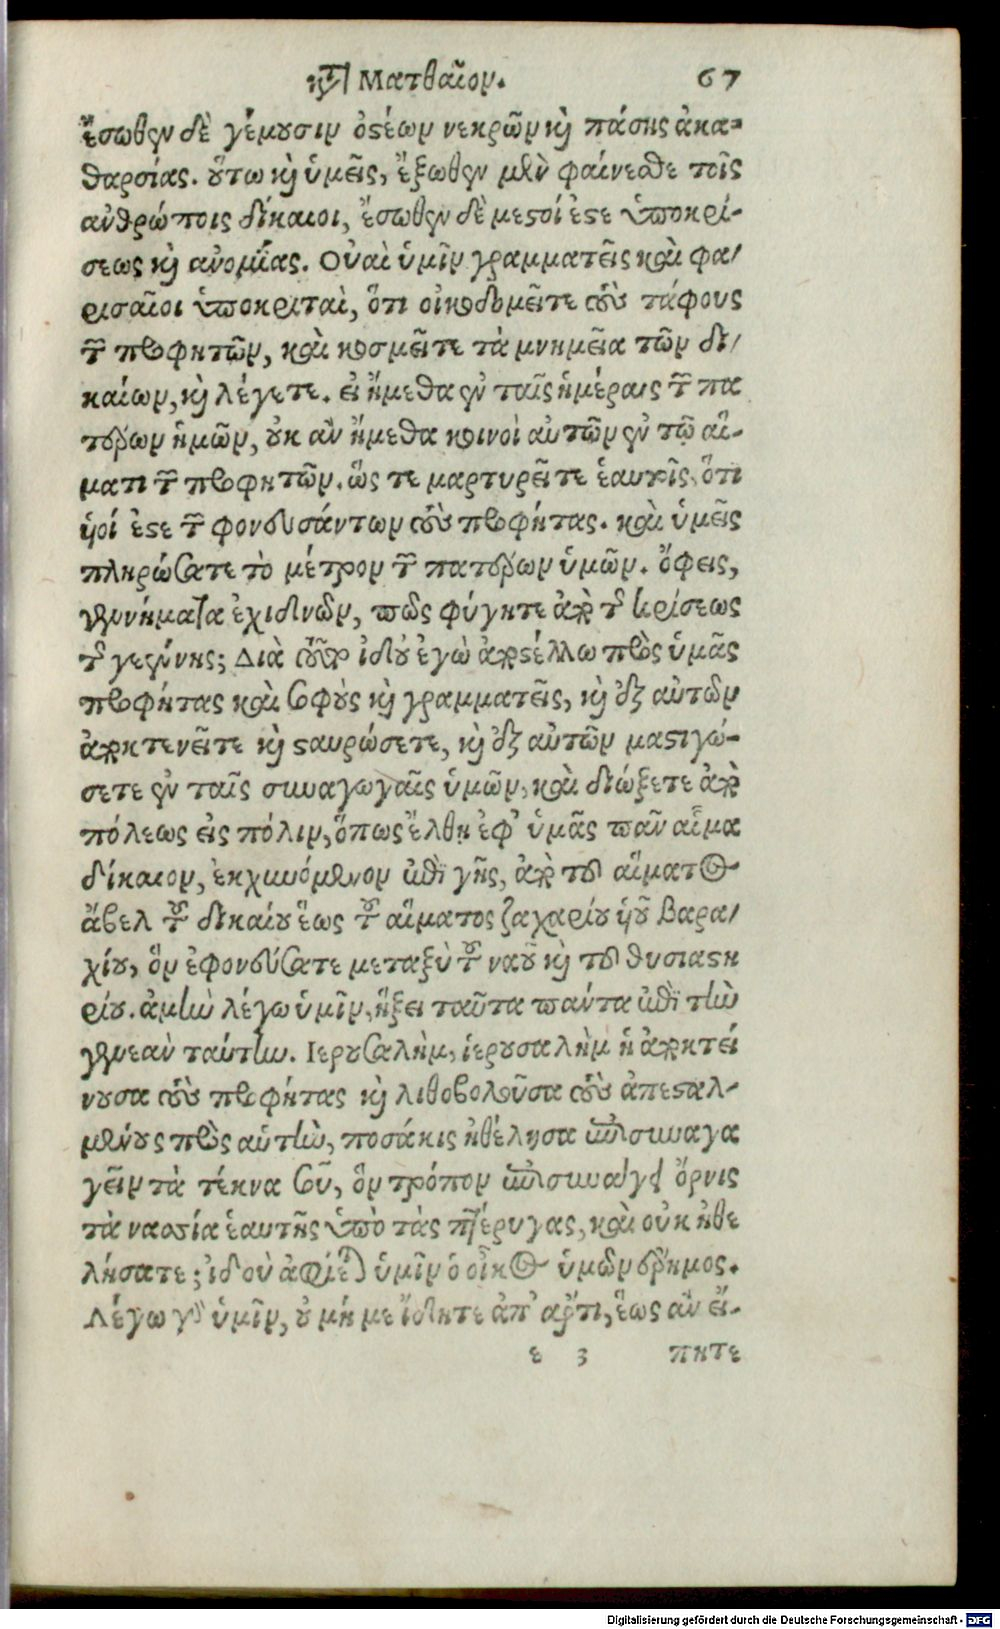 κατὰ Ματθαῖον. 67
ἔσωθεν δὲ γέμουσιν ὀστέων νεκρῶν καὶ πάσης ἀκα-
θαρσίας. οὕτω καὶ ὑμεῖς, ἔξωθεν μὲν φαίνεσθε τοῖς
ἀνθρώποις δίκαιοι, ἔσωθεν δὲ μεστοί ἐστε ὑποκρί-
σεως καὶ ἀνομίας. Οὐαὶ ὑμῖν γραμματεῖς καὶ φα/
ρισαῖοι ὑποκριταὶ, ὅτι οἰκοδομεῖτε τοὺς τάφους
τῶν προφητῶν, καὶ κοσμεῖτε τὰ μνημεῖα τῶν δι/
καίων, καὶ λέγετε. εἰ ἤμεθα ἐν ταῖς ἡμέραις τῶν πα
τέρων ἡμῶν, οὐκ ἂν ἤμεθα κοινοὶ αὐτῶν ἐν τῷ αἵ-
ματι τῶν προφητῶν. ὥς τε μαρτυρεῖτε ἑαυτοῖς, ὅτι
υἱοί ἐστε τῶν φονευσάντων τοὺς προφήτας. καὶ ὑμεῖς
πληρώσατε τὸ μέτρον τῶν πατέρων ὑμῶν. ὄφεις,
γεννήματα ἐχιδνῶν, πῶς φύγητε ἀπὸ τῆς κρίσεως
τῆς γεέννης; Διὰ τοῦτο ἰδοὺ ἐγὼ ἀποστέλλω πρὸς ὑμᾶς
προφήτας καὶ σοφοὺς καὶ γραμματεῖς, καὶ ἐξ αὐτῶν
ἀποκτενεῖτε καὶ σταυρώσετε, καὶ ἐξ αὐτῶν μαστιγώ-
σετε ἐν ταῖς συναγωγαῖς ὑμῶν, καὶ διώξετε ἀπὸ
πόλεως εἰς πόλιν, ὅπως ἔλθῃ ἐφ’ ὑμᾶς πᾶν αἷμα
δίκαιον, ἐκχυνόμενον ἐπὶ γῆς, ἀπὸ τοῦ αἵματος
ἄβελ τοῦ δικαίου ἕως τοῦ αἵματος ζαχαρίου υἱοῦ Βαρα/
χίου, ὃν ἐφονεύσατε μεταξὺ τοῦ ναοῦ καὶ τοῦ θυσιαστη
ρίου. ἀμὴν λέγω ὑμῖν, ἥξει ταῦτα πάντα ἐπὶ τὴν
γενεὰν ταύτην. Ιερουσαλὴμ, ἱερουσαλὴμ ἡ ἀποκτεί
νουσα τοὺς προφήτας καὶ λιθοβολοῦσα τοὺς ἀπεσταλ-
μένους πρὸς αὐτὴν, ποσάκις ἠθέλησα ἐπισυναγα
γεῖν τὰ τέκνα σοῦ, ὃν τρόπον ἐπισυνάγει ὄρνις
τὰ νοσσία ἑαυτῆς ὑπὸ τὰς πτέρυγας, καὶ οὐκ ἠθε
λήσατε; ἰδοὺ ἀφίεται ὑμῖν ὁ οἶκος ὑμῶν ἔρημος.
Λέγω γὰρ ὑμῖν, οὐ μή με ἴδητε ἀπ’ ἄρτι, ἕως ἂν εἴ-
e 3 πητε
Digitalisierung gefördert durch die Deutsche Forschungsgemeinschaft - DFG